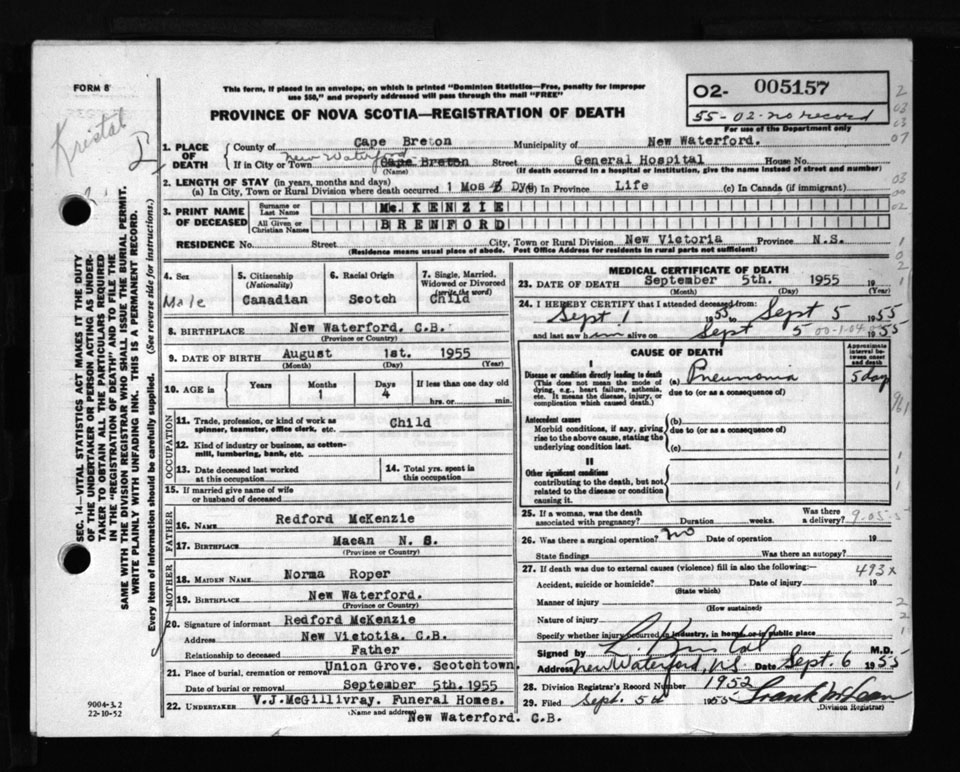 FORM 8
This form, if placed in an envelope, on which is printed "Dominion Statistics—Free, penalty for improper
use $50," and properly addressed will pass through the mail "FREE"
O2- 005157
55-02-no record
For use of the Department only
PROVINCE OF NOVA SCOTIA—REGISTRATION OF DEATH
1. PLACE OF DEATH
County of Cape Breton Municipality of New Waterford.
If in City or Town New Waterford Cape Breton Street General Hospital House No.
(Name) (If death occurred in a hospital or institution, give its name instead of street and number)
2. LENGTH OF STAY (in years, months and days)
(a) In City, Town or Rural Division where death occurred 1 Mos Dys) In Province Life (c) In Canada (if immigrant)
3. PRINT NAME OF DECEASED
Surname or Last Name Mc. KENZIE
All Given or Christian Names BRENFORD
RESIDENCE No. Street City, Town or Rural Division New Victoria Province N.S.
(Residence means usual place of abode. Post Office Address for residents in rural parts not sufficient)
4. Sex Male
5. Citizenship (Nationality) Canadian
6. Racial Origin Scotch
7. Single, Married, Widowed or Divorced (write the word) Child
8. BIRTHPLACE New Waterford. C.B.
(Province or Country)
9. DATE OF BIRTH August 1st. 1955
(Month) (Day) (Year)
10. AGE in Years Months 1 Days 4 If less than one day old
hrs. or min.
OCCUPATION
11. Trade, profession, or kind of work as
spinner, teamster, office clerk, etc. Child
12. Kind of industry or business, as cotton-
mill, lumbering, bank, etc.
13. Date deceased last worked
at this occupation
14. Total yrs. spent in
this occupation
15. If married give name of wife
or husband of deceased
FATHER
16. NAME Redford McKenzie
17. BIRTHPLACE Macan N. S.
(Province or Country)
MOTHER
18. MAIDEN NAME Norma Roper
19. BIRTHPLACE New Waterford.
(Province or Country)
20. Signature of informant Redford McKenzie
Address New Victotia. C.B.
Relationship to deceased Father
21. Place of burial, cremation or removal Union Grove. Scotchtown.
Date of burial or removal September 5th.1955
22. UNDERTAKER V.J.McGillivray. Funeral Homes.
(Name and address)
New Waterford. C.B.
MEDICAL CERTIFICATE OF DEATH
23. DATE OF DEATH September 5th. 1955
(Month) (Day) (Year)
24. I HEREBY CERTIFY that I attended deceased from:
Sept 1 1955 to Sept 5 1955
and last saw him alive on Sept 5 1955
CAUSE OF DEATH
Approximate interval between onset and death
I
Disease or condition directly leading to death (a) Pneumonia 5 day
(This does not mean the mode of dying, e.g., heart failure, asthenia, etc. It means the disease, injury, or complication which caused death.)
due to (or as a consequence of)
Antecedent causes (b)
Morbid conditions, if any, giving rise to the above cause, stating the underlying condition last.
due to (or as a consequence of)
(c)
II
Other significant conditions
contributing to the death, but not
related to the disease or condition
causing it.
25. If a woman, was the death
associated with pregnancy? Duration weeks. Was there a delivery?
26. Was there a surgical operation? no Date of operation 19
State findings Was there an autopsy?
27. If death was due to external causes (violence) fill in also the following:— 493x
Accident, suicide or homicide? Date of injury 19
(State which)
Manner of injury
(How sustained)
Nature of injury
Specify whether injury occurred in industry, in home or in public place
Signed by M.D.
Address New Waterford, NS Date Sept. 6 1955
28. Division Registrar's Record Number 1952
29. Filed Sept. 5th 1955
(Division Registrar)
SEC. 14—VITAL STATISTICS ACT MAKES IT THE DUTY
OF THE UNDERTAKER OR PERSON ACTING AS UNDER-
TAKER TO OBTAIN ALL THE PARTICULARS REQUIRED
IN THE "REGISTRATION OF DEATH" AND TO FILE THE
SAME WITH THE DIVISION REGISTRAR WHO SHALL ISSUE THE BURIAL PERMIT.
WRITE PLAINLY WITH UNFADING INK. THIS IS A PERMANENT RECORD.
Every item of information should be carefully supplied. (See reverse side for instructions.)
9004-3.2
22-10-52